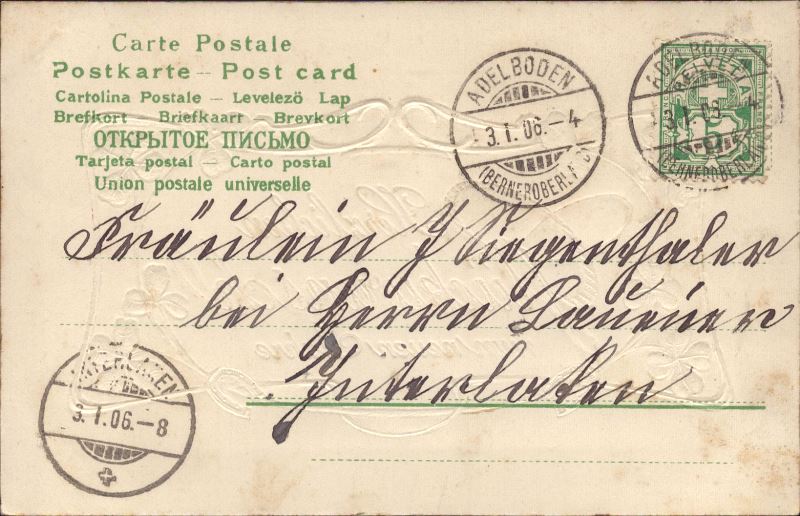 Carte Postale
Postkarte – Post card
Cartolina Postale – Levelezö Lap
Brefkort Briefkaart – Brevkort
ОТКРЫТОЕ ПИСЬМО
Tarjeta postal – Carto postal
Union postale universelle
ADELBODEN
3.I.06.–4
(BERNEROBERLAND)
HELVETIA
5
Fräulein J Siegenthaler
bei Herrn Lauener
Interlaken
INTERLAKEN
3.I.06.–8